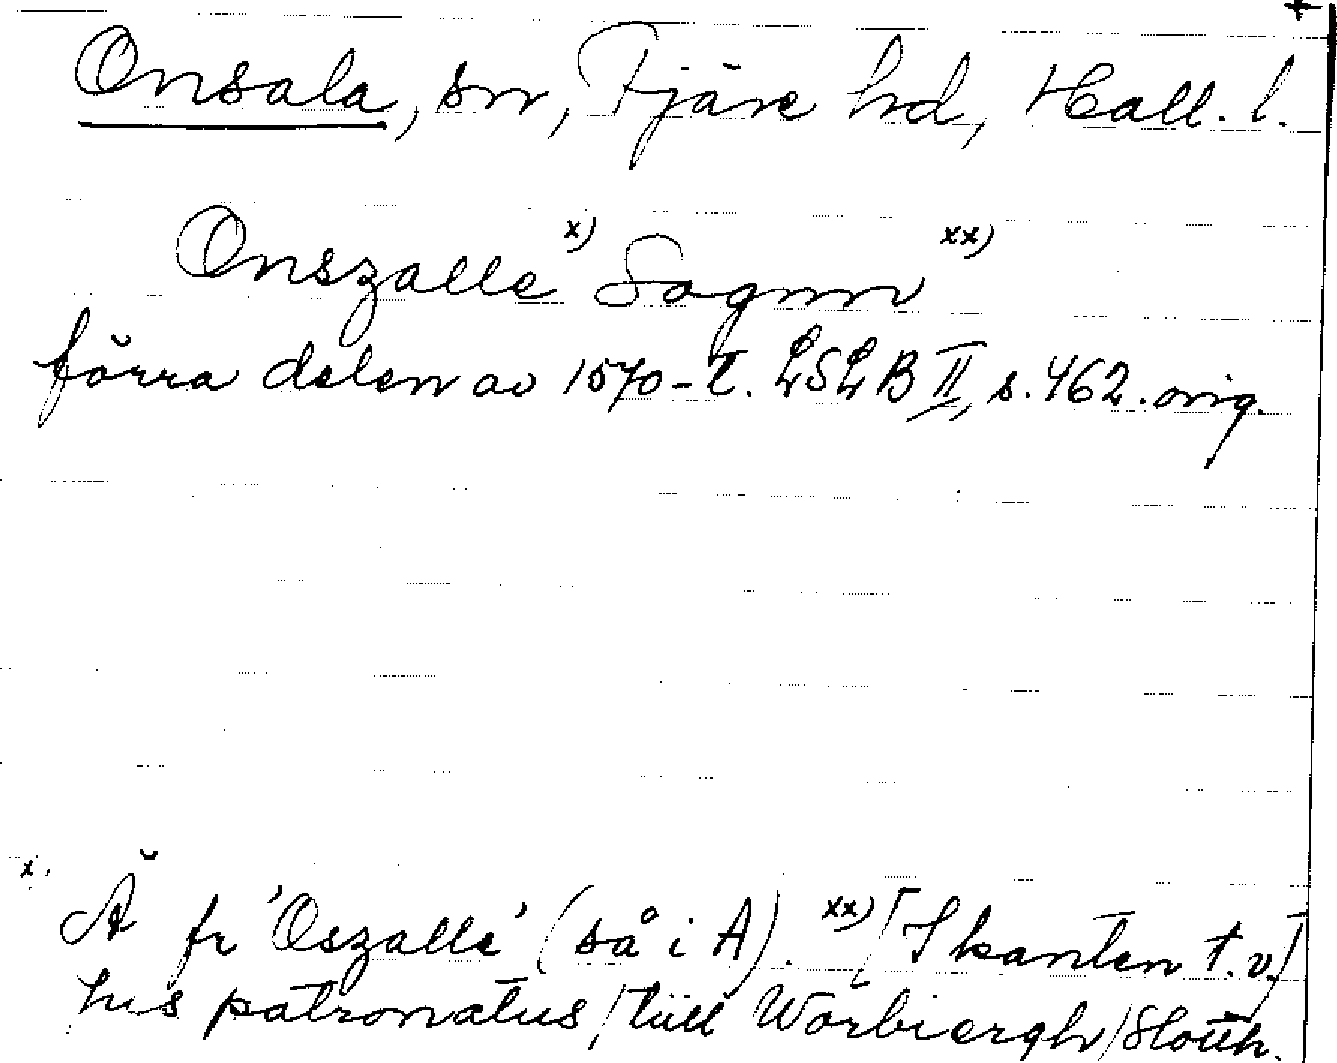 Onsala, sn, Fjäre hd, Hall. l.
Onszalle x) Sognn xx)
förra delen av 1570-t. LSLB II, s. 462. orig.
x. Ä fr 'Oszalle' (så i A). xx) [I kanten t.v.]
hus patronatus / tiill Worbiergh / Slotth.